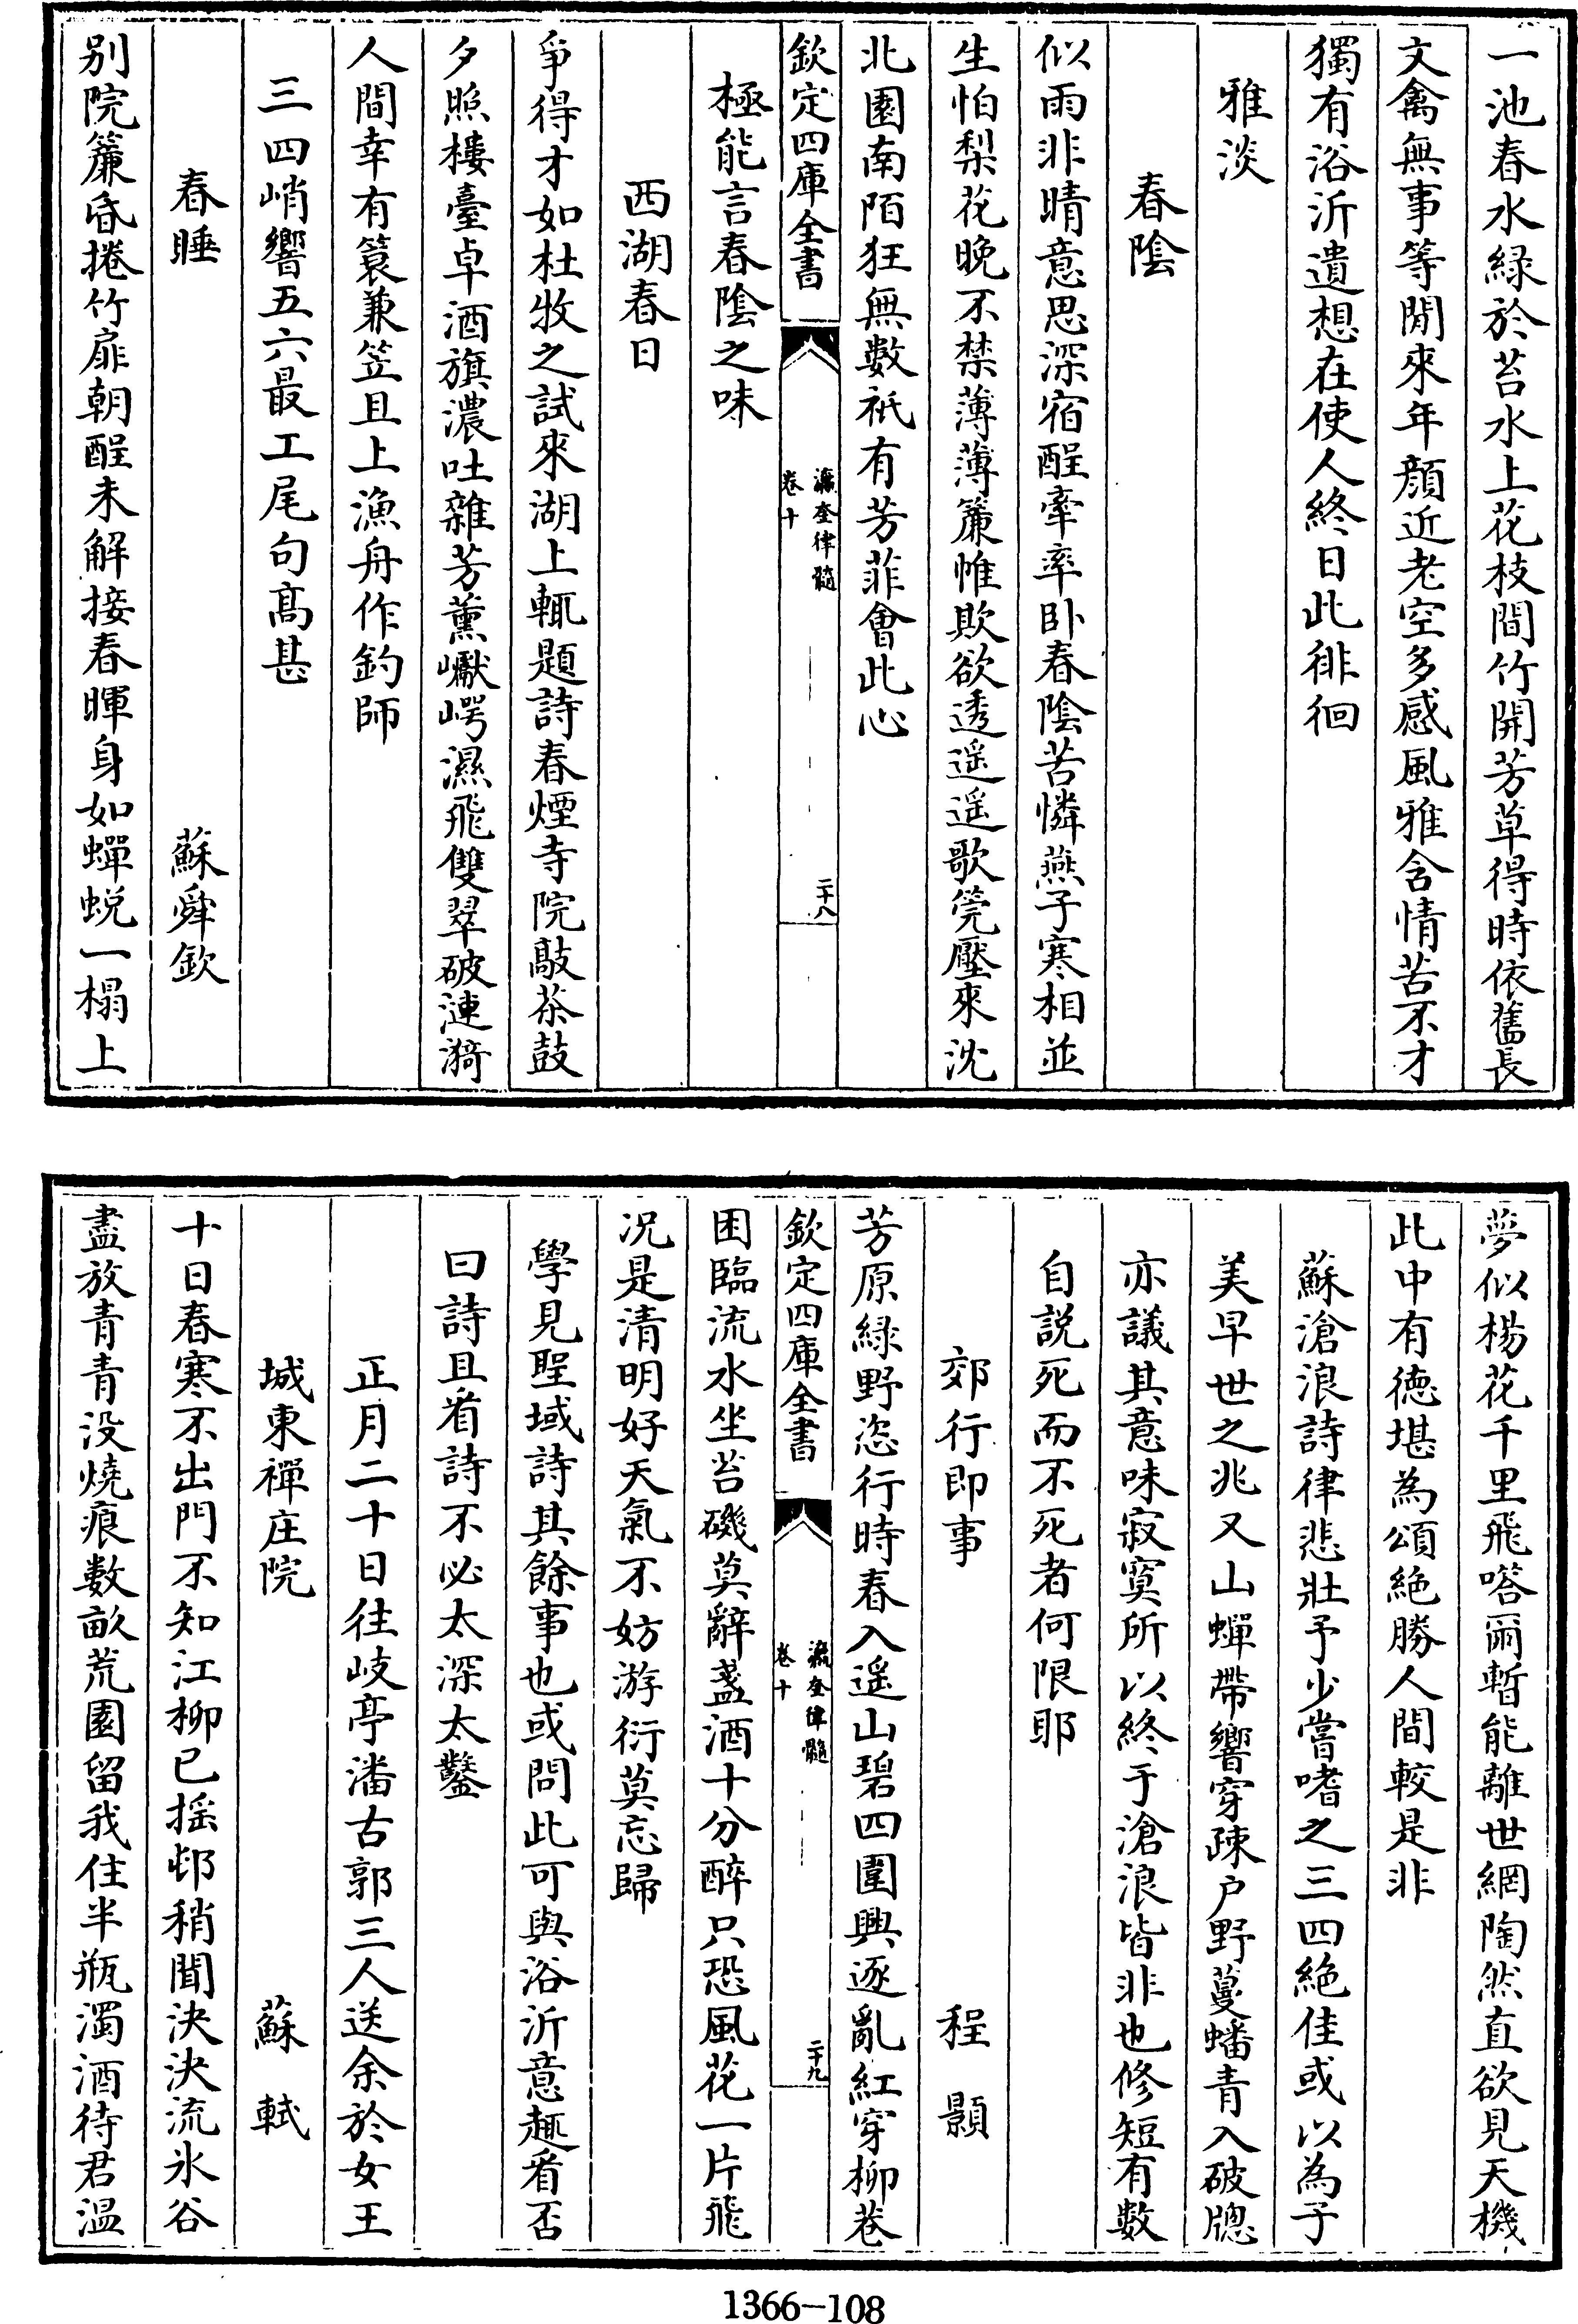 一池春水緑於苔水上花枝間竹開芳草得時依舊長
文禽無事等閒來年顔近老空多感風雅含情苦不才
獨有浴沂遺想在使人終日此徘徊
雅淡
春隂
似雨非晴意思深宿酲牽率卧春隂苦憐燕子寒相並
生怕梨花晚不禁薄薄簾帷欺欲透遥遥歌筦壓來沈
北園南陌狂無數祇有芳菲會此心
欽定四庫全書
瀛奎律髓
卷十
二十八
極能言春隂之味
西湖春日
爭得才如杜牧之試來湖上輒題詩春煙寺院敲茶鼓
夕照樓臺卓酒旗濃吐雜芳薰巘崿濕飛雙翠破漣漪
人間幸有簑兼笠且上漁舟作釣師
三四峭響五六最工尾句髙甚
春睡 蘇舜欽
别院簾昏捲竹扉朝酲未解接春暉身如蟬蜕一榻上
夢似楊花千里飛嗒爾暫能離世網陶然直欲見天機
此中有徳堪為頌絶勝人間較是非
蘇滄浪詩律悲壯予少嘗嗜之三四絶佳或以為子
美早世之兆又山蟬帶響穿疎户野蔓蟠青入破牕
亦議其意味寂寞所以終于滄浪皆非也修短有數
自説死而不死者何限耶
郊行即事 程顥
芳原緑野恣行時春入遥山碧四圍興逐亂紅穿柳巷
欽定四庫全書
瀛奎律髓
卷十
二十九
困臨流水坐苔磯莫辭盞酒十分醉只恐風花一片飛
况是清明好天氣不妨游衍莫忘歸
學見聖域詩其餘事也或問此可與浴沂意趣看否
曰詩且看詩不必太深太鑿
正月二十日往岐亭潘古郭三人送余於女王
城東禪庄院 蘇軾
十日春寒不出門不知江柳已摇邨稍聞決決流氷谷
盡放青青没燒痕數畝荒園留我住半瓶濁酒待君温
1366-108